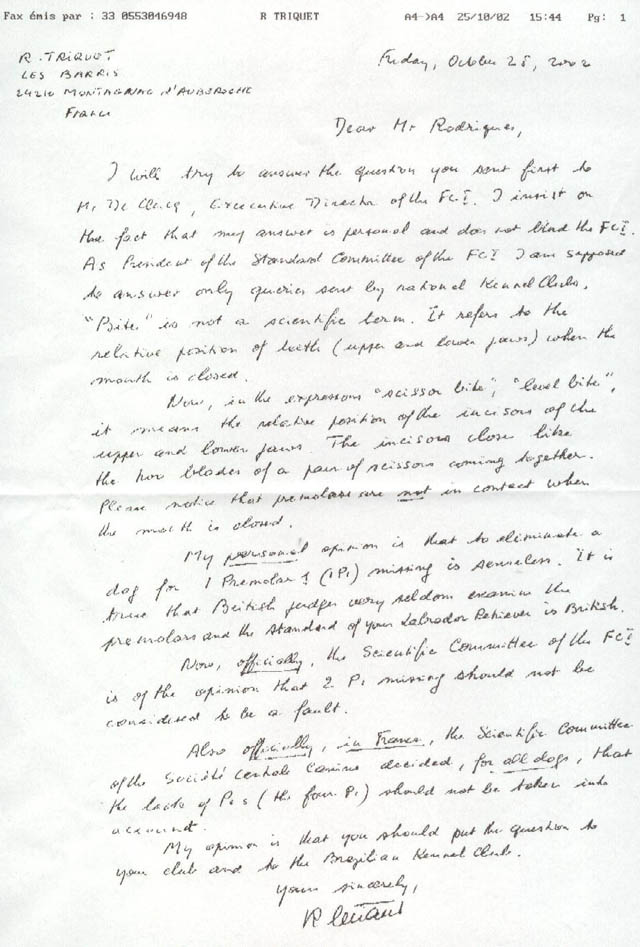 Fax émis par : 33 0553046948 R TRIQUET A4->A4 25/10/02 15:44 Pg: 1
R. TRIQUET
LES BARRIS
24210 MONTAGNAC D'AUBEROCHE
France
Friday, October 25, 2002
Dear Mr Rodrigues,
I will try to answer the question you sent first to
Mr De Clercq, Executive Director of the FCI. I insist on
the fact that my answer is personal and does not bind the FCI.
As President of the Standard Committee of the FCI I am supposed
to answer only queries sent by national Kennel Clubs.
"Bite" is not a scientific term. It refers to the
relative position of teeth (upper and lower jaws) when the
mouth is closed.
Now, in the expressions "scissor bite", "level bite",
it means the relative position of the incisors of the
upper and lower jaws. The incisors close like
the two blades of a pair of scissors coming together.
Please notice that premolars are not in contact when
the mouth is closed.
My personal opinion is that to eliminate a
dog for 1 Premolar 1 (1P1) missing is senseless. It is
true that British judges very seldom examine the
premolars and the standard of your Labrador Retriever is British.
Now, officially, the Scientific Committee of the FCI
is of the opinion that 2 P1 missing should not be
considered to be a fault.
Also officially, in France, the Scientific Committee
of the Société Centrale Canine decided, for all dogs, that
the lack of P1s (the four P1) should not be taken into
account.
My opinion is that you should put the question to
your club and to the Brazilian Kennel Club.
Yours sincerely,
R Triquet